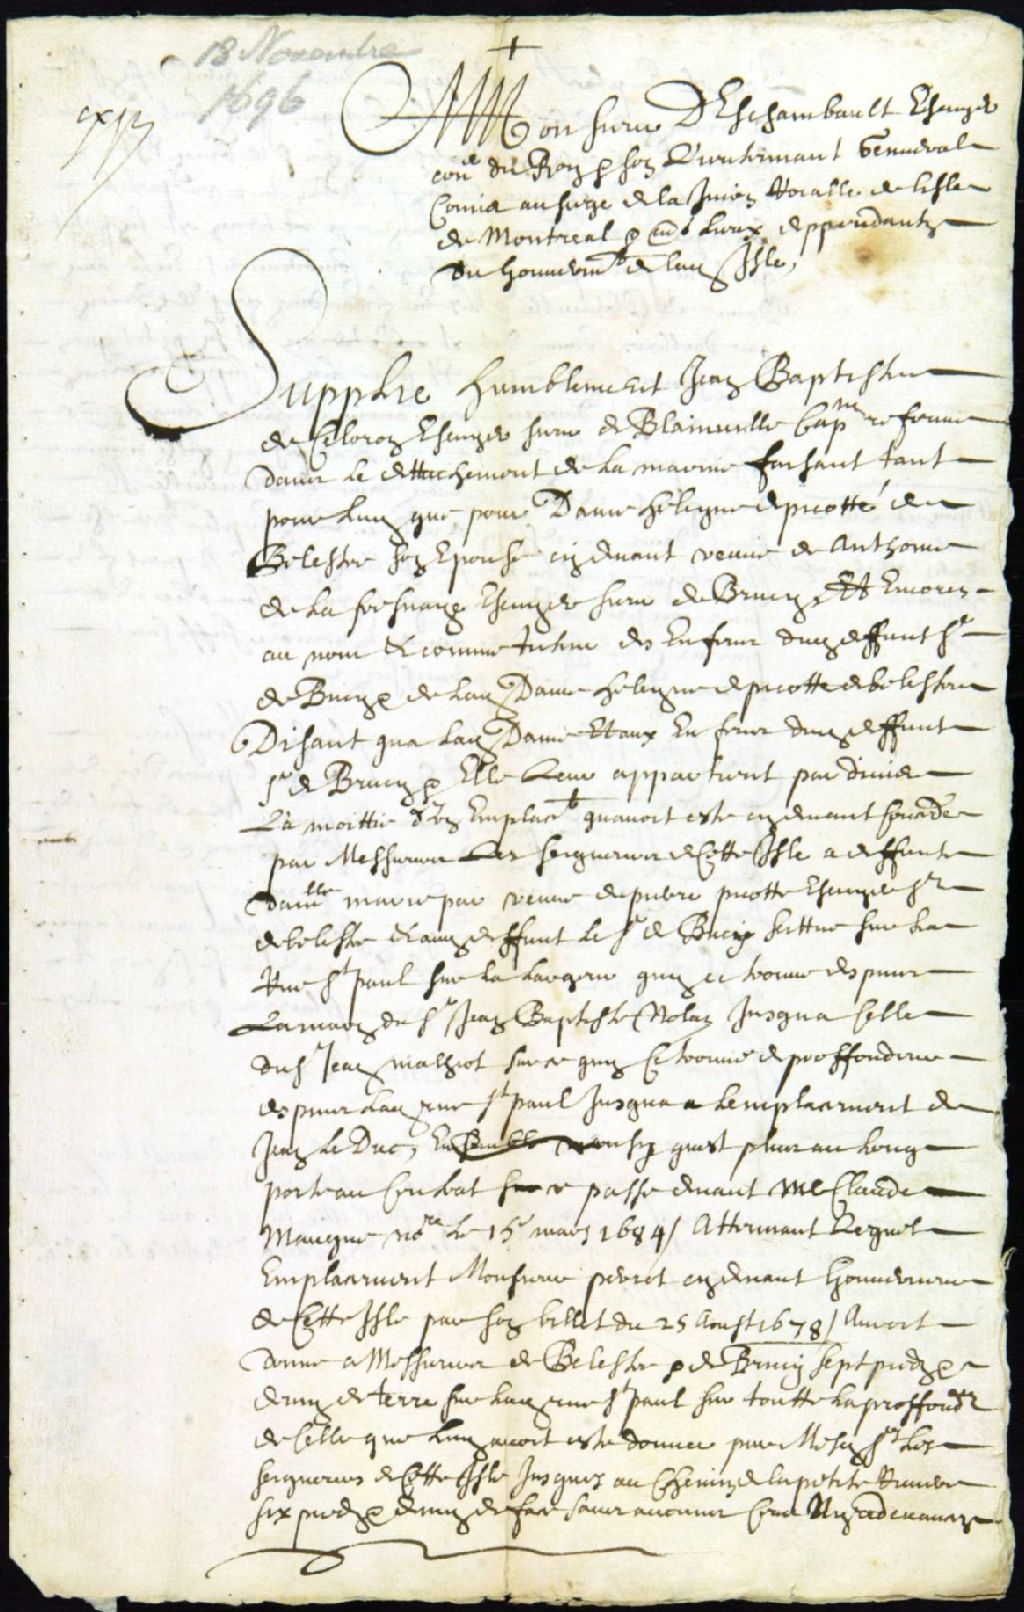 18 Novembre
1696
exp
Monsieur Deschambault Escuyer
con.er du Roy & son Lieutenant General
Comis au siege de la Jurion Royalle de lisle
de Montreal & lieux deppendants
du Gouvernemt de lad Isle,
Supplie humblement Jean Baptiste
de Celoron Escuyer sieur de Blainville Capne reformé
dans le dettachement de la marine faisant tant
pour luy que pour Dame helayne de picotté de
Belestre son Epouse cy devant veuve de Anthoine
de la fresnaye Escuyer sieur de Brucy, Et Encores
au nom & comme tuteur des Enfans dud deffunt sr
de Brucy & de lad Dame helayne de picotté de belestre
Disant qua lad Dame Et aux Enfans dud deffunt
sr de Brucy & Elle leur appartient par
La moittié d'un Emplacet quavoit esté cy devant
par Messieurs Les seigneurs de Cette Isle a deffunte
Damlle marie par veuve de pierre picotté Escuyer sr
de belestre & aud deffunt le sr de Brucy scittué sur la
Rue st paul sur la largeur quy ce trouve depuis
La maison du sr Jean Baptiste Nolan Jusqua Celle
du sr Jean mathiot sur ce quy Ce trouve de proffondeur
depuis lad rue st paul Jusqua a lemplacement de
Jean Le Duc, Ensemble quest plus au long
porté au Contrat passé devant Me Claude
Maugue nore le 15e mars 1684/ Attenant Lequel
Emplacement Monsieur perrot cy devant Gouverneur
de Cette Isle par son billet du 25 Aoust 1678/ Auroit
donné a Messieurs de Belestre & de Brucy sept pieds &
demy de terre sur lad rue st paul sur toutte la proffondr
de Celle que luy avoit esté donnée par Mesd srs Les
seigneurs de Cette Isle Jusques au Chemin de la petite Riviere
six pieds & demy de face